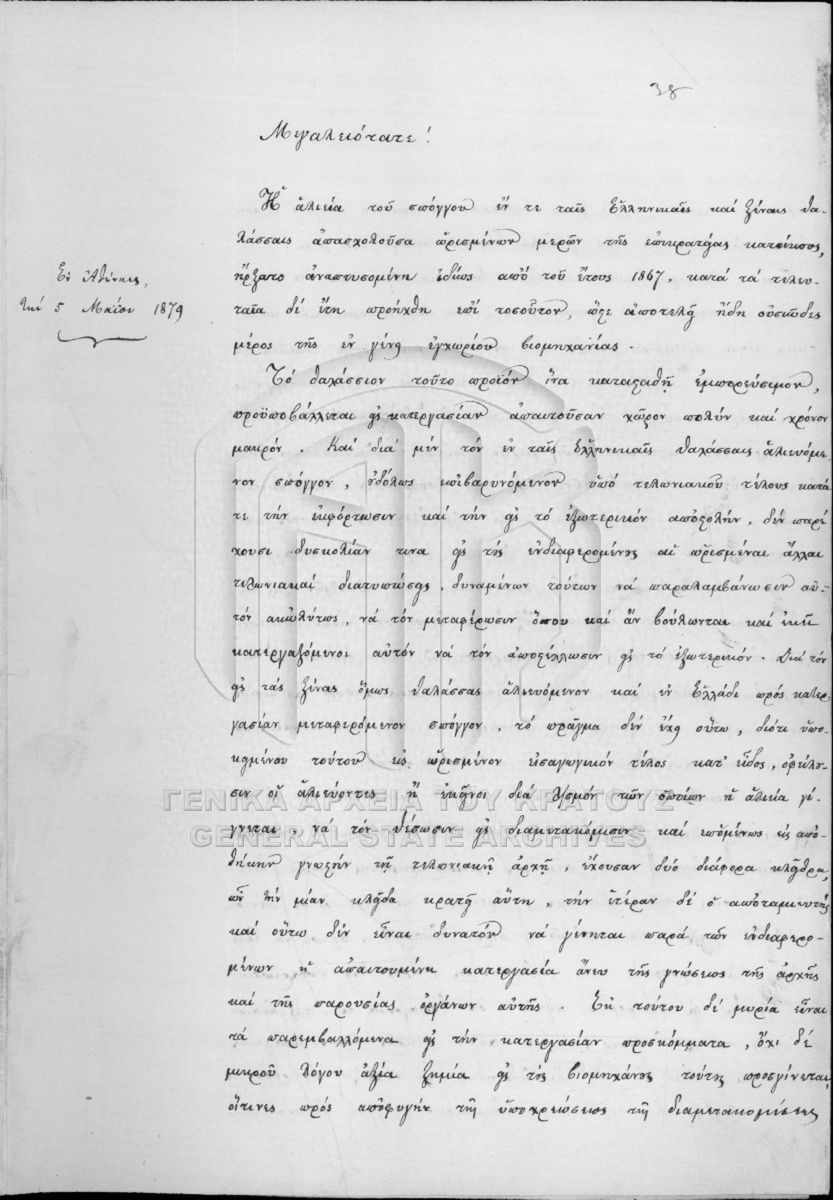 38
Μεγαλειότατε!
Ἡ ἁλιεία τοῦ σπόγγου ἔν τε ταῖς Ἑλληνικαῖς καί ξέναις θα-
λάσσαις ἀπασχολοῦσα ὡρισμένων μερῶν τῆς ἐπικρατείας κατοίκους,
ἤρξατο ἀναπτυσομένη ἰδίως ἀπό τοῦ ἔτους 1867, κατά τά τελευ-
ταῖα δέ ἔτη προήχθη ἐπί τοσοῦτον, ὥστε ἀποτελεῖ ἤδη οὐσιῶδες
μέρος τῆς ἐν γένει ἐγχωρίου βιομηχανίας.
Ἐν Ἀθήναις,
τῇ 5 Μαΐου 1879
Τό θαλάσσιον τοῦτο προϊόν ἵνα κατασταθῇ ἐμπορεύσιμον,
προϋποβάλλεται εἰς κατεργασίαν ἀπαιτοῦσαν χῶρον πολύν καί χρόνον
μακρόν. Καί διά μέν τόν ἐν ταῖς Ἑλληνικαῖς θαλάσσαις ἁλιευόμε-
νον σπόγγον, οὐδόλως ἐπιβαρυνόμενον ὑπό τελωνιακοῦ τέλους κατά
τε τήν ἐκφόρτωσιν καί τήν εἰς τό ἐξωτερικόν ἀποστολήν, δέν παρέ
χουσι δυσκολίαν τινα εἰς τούς ἐνδιαφερομένους αἱ ὡρισμέναι ἄλλαι
τελωνιακαί διατυπώσεις, δυναμένων τούτων νά παραλαμβάνωσιν αὐ-
τόν ἀκωλύτως, νά τόν μεταφέρωσιν ὅπου καί ἄν βούλωνται καί ἐκεῖ
κατεργαζόμενοι αὐτόν νά τόν ἀποστέλλωσιν εἰς τό ἐξωτερικόν. Διά τόν
εἰς τάς ξένας ὅμως θαλάσσας ἁλιευόμενον καί ἐν Ἑλλάδι πρός κατερ-
γασίαν μεταφερόμενον σπόγγον, τό πρᾶγμα δέν ἔχει οὕτω, διότι ὑπο-
κειμένου τούτου εἰς ὡρισμένον εἰσαγωγικόν τέλος κατ' εἶδος, ὀφείλου-
σιν οἱ ἁλιεύοντες ἤ ἐκεῖνοι διά λ)σμόν τῶν ὁποίων ἡ ἁλιεία γί-
γνεται, νά τόν θέσωσιν εἰς διαμετακόμισιν καί ἑπομένως εἰς ἀπο-
θήκην γνωστήν τῇ τελωνιακῇ ἀρχῇ, ἔχουσαν δύο διάφορα κλεῖθρα,
ὧν τήν μίαν κλεῖδα κρατεῖ αὕτη, τήν ἑτέραν δέ ὁ ἀποταμιευτής
καί οὕτω δέν εἶναι δυνατόν νά γένηται παρά τῶν ἐνδιαφερο-
μένων ἡ ἀπαιτουμένη κατεργασία ἄνευ τῆς γνώσεως τῆς ἀρχῆς
καί τῆς παρουσίας ὀργάνων αὐτῆς. Ἐκ τούτου δέ μυρία εἶναι
τά παρεμβαλλόμενα εἰς τήν κατεργασίαν προσκόμματα, ὄχι δέ
μικροῦ λόγου ἀξία ζημία εἰς τούς βιομηχάνους τούτους προσγίνεται,
οἵτινες πρός ἀποφυγήν τῆς ὑποχρεώσεως τῆς διαμετακομίσεως
ΓΕΝΙΚΑ ΑΡΧΕΙΑ ΤΟΥ ΚΡΑΤΟΥΣ
GENERAL STATE ARCHIVES